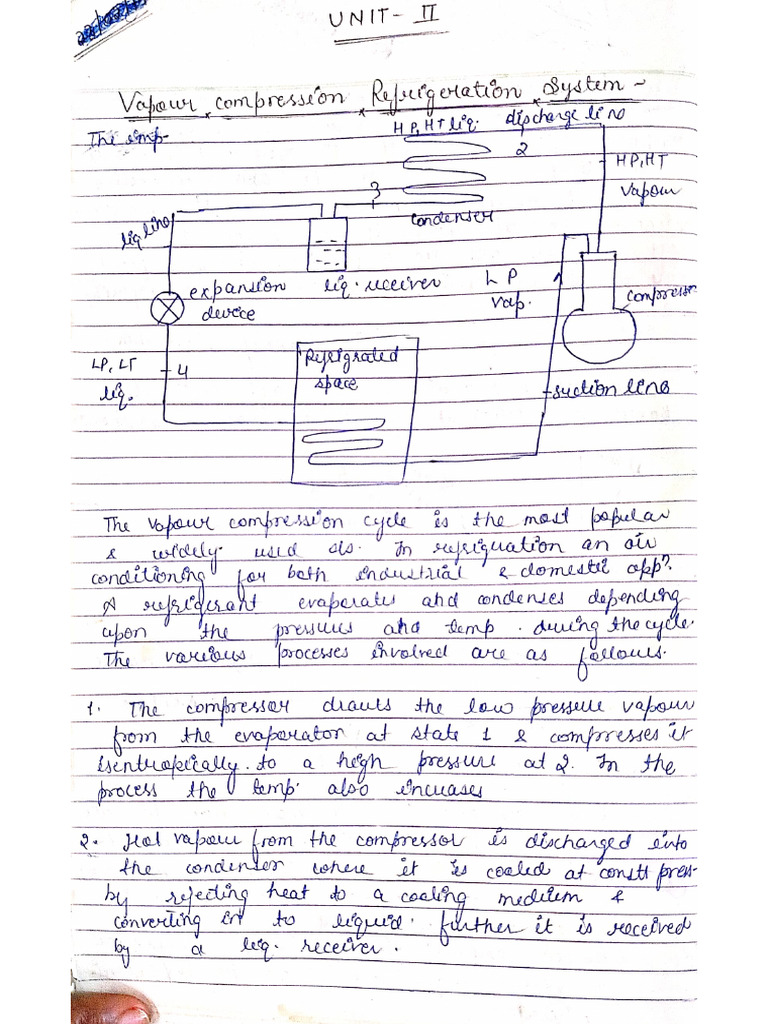 UNIT - II
Vapour compression Refrigeration System ~
The simp-
HP, HT liq. discharge line
2
HP, HT
vapour
3
condenser
liq line
expansion
device
liq. receiver
LP
vap.
compressor
LP, LT
liq.
4
Refrigrated
space
suction line
The vapour compression cycle is the most popular
& widely used sls. In refriguation an air
conditioning for both industrial & domestic appn.
A refrigerant evaporates and condenses depending
upon the pressures and temp. during the cycle.
The various processes involved are as follows.
1. The compressor draws the low pressure vapour
from the evaporator at state 1 & compresses it
isentropically to a high pressure at 2. In the
process the temp. also increases
2. Hot vapour from the compressor is discharged into
the condenser where it is cooled at constt pres-
by rejecting heat to a cooling medium &
converting in to liquid. further it is received
by a liq. receiver.